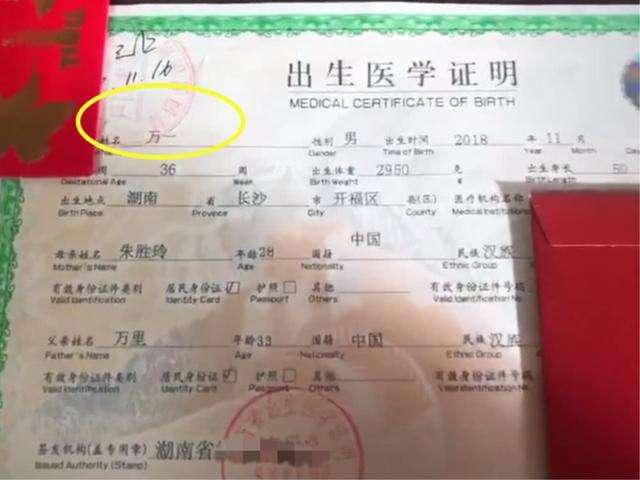 11.16
出生医学证明
MEDICAL CERTIFICATE OF BIRTH
姓名 万一 性别 男 出生时间 2018 年 11 月
Gender Time of Birth Year Month
周 36 周 出生体重 2950 克 出生身长 50
Gestational Age Week Birth Weight
出生地点 湖南 省 长沙 市 开福区 县(区) 医疗机构名称
Birth Place Province City County Medical Institutions
母亲姓名 朱胜玲 年龄28 国籍 中国 民族 汉族
Mother's Name Age Nationality Ethnic Group
有效身份证件类别 居民身份证 护照 其他 有效身份证件号码
Valid Identification Identity Card Passport Others Valid Identification
父亲姓名 万里 年龄33 国籍 中国 民族 汉族
Father's Name Age Nationality Ethnic Group
有效身份证件类别 居民身份证 护照 其他 有效身份证件号码
Valid Identification Identity Card Passport Others Valid Identification No.
签发机构(盖专用章) 湖南省
Issued Authority (Stamp)